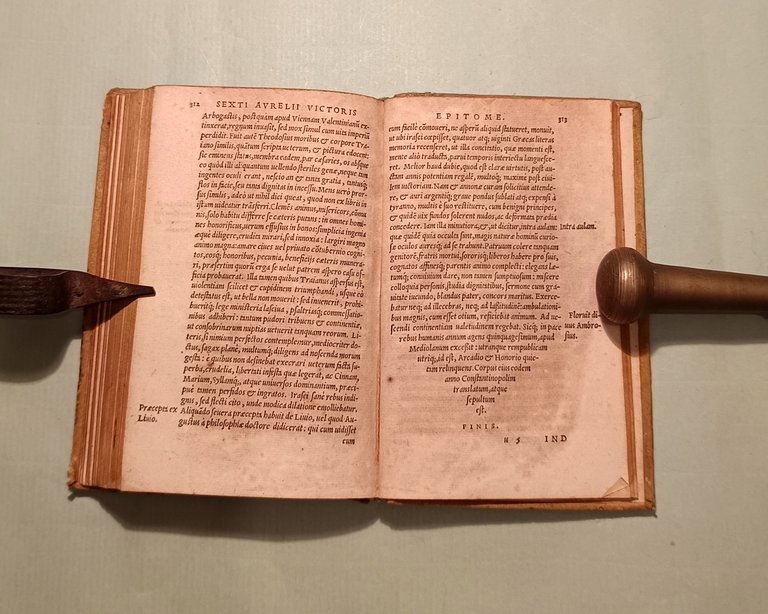 312 SEXTI AVRELII VICTORIS
Arbogastes, postquam apud Viennam Valentinianū ex-
tinxerat, regnum inuasit, sed mox simul cum uita imperiū
perdidit. Fuit autē Theodosius moribus & corpore Tra-
iano similis, quātum scripta ueterum, & pictura edocent:
sic eminens status, membra eadem, par cæsaries, os absque
eo quòd illi aliquantum uellendo steriles genæ, neque tam
ingentes oculi erant, nescio an & tanta gratia, tantusq;
flos in facie, seu tanta dignitas in incessu. Mens uerò pror-
sus similis, adeò ut nihil dici queat, quod non ex libris in
istum uideatur trāsferri. Clemēs animus, misericors, cōmu
nis, solo habitu differre se cæteris putans: in omnes homi
nes honorificus, uerum effusius in bonos: simplicia ingenia
æquè diligere, erudita mirari, sed innoxia: largiri magno
animo magna: amare ciues uel priuato cōtubernio cogni-
tos, eosq; honoribus, pecunia, beneficijs cæteris munera-
ri, præsertim quorū erga se uelut patrem aspero casu of-
ficia probauerat. Illa tamen quibus Traianus aspersus est,
uiolentiam scilicet & cupidinem triumphandi, usque eò
detestatus est, ut bella non mouerit: sed inuenerit, prohi-
buerítq; lege ministeria lasciua, psaltriasq; commessatio-
nibus adhiberi: tantum pudori tribuens & continentiæ,
ut consobrinarum nuptias uetuerit tanquam sororum. Li-
teris, si nimium perfectos contemplemur, mediocriter do-
ctus, sagax planè, multumq; diligens ad noscenda maiorum
gesta: è quibus non desinebat execrari ueterum facta su-
perba, crudelia, libertati infesta quæ legerat, ac Cinnam,
Marium, Syllamq;, atque uniuersos dominantium, præci-
puè tamen perfidos & ingratos. Irasci sanè rebus indi-
gnis, sed flecti citò, unde modica dilatione emolliebatur.
Præcepta ex Aliquādo seuera præcepta habuit de Liuio, uel quod Au-
Liuio. gustus à philosophiæ doctore didicerat: qui cum uidisset
cum
EPITOME. 313
eum facilè cōmoueri, ne asperū aliquid statueret, monuit,
ut ubi irasci cœpisset, quatuor atq; uiginti Græcas literas
memoria recenseret, ut illa concitatio, quæ momenti est,
mente aliò traducta, parui temporis interiectu languesce-
ret. Melior haud dubiè, quod est claræ uirtutis, post au-
ctam annis potentiam regalē, multóq; maximè post ciui-
lem uictoriam. Nam & annonæ curam solicitius attende-
re, & auri argentíq; graue pondus sublati atq; expensi à
tyranno, multis è suo restituere, cum benigni principes,
& quidē uix fundos solerent nudos, ac deformata prædia
concedere. Iam illa minutiora, & , ut dicitur, intra aulam: Intra aulam.
quæ quidē quia occulta sunt, magis naturæ hominū curio-
sæ oculos aureísq; ad se trahunt. Patruum colere tanquam
genitorē, fratris mortui, sororísq; liberos habere pro suis,
cognatos affinésq; parentis animo complecti: elegans læ-
tumq; conuiuium dare, non tamen sumptuosum: miscere
colloquia personis, studia dignitatibus, sermone cum gra-
uitate iucundo, blandus pater, concors maritus. Exerce-
batur neq; ad illecebras, neq; ad lassitudinē: ambulationi-
bus magnis, cum esset otium, reficiebat animum. Ad ue- Floruit di-
scendi continentiam ualetudinem regebat. Sicq; in pace uus Ambro-
rebus humanis annum agens quinquagesimum, apud sius.
Mediolanum excessit: utranque rempublicam
utrisq;, id est, Arcadio & Honorio quie-
tam relinquens. Corpus eius eodem
anno Constantinopolim
translatum, atque
sepultum
est.
FINIS.
IND